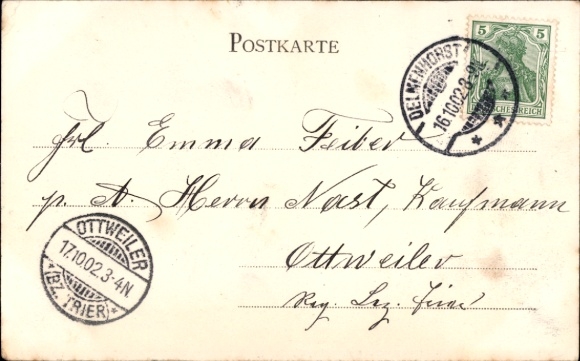 POSTKARTE
5 5
DEUTSCHES REICH
DELMENHORST
16.10.02.8-9V.
* * *
Frl. Emma Feiber
p. A. Herrn Nast, Kaufmann
Ottweiler
Reg. Bez. Trier
OTTWEILER
17.10.02.3-4N.
(BZ. TRIER)